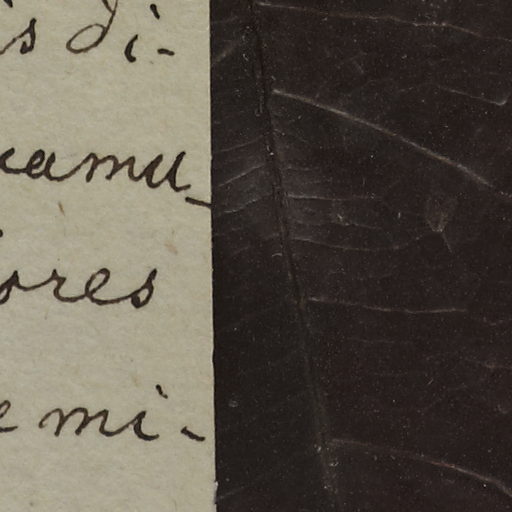 is di-
camu-
ores
e mi-